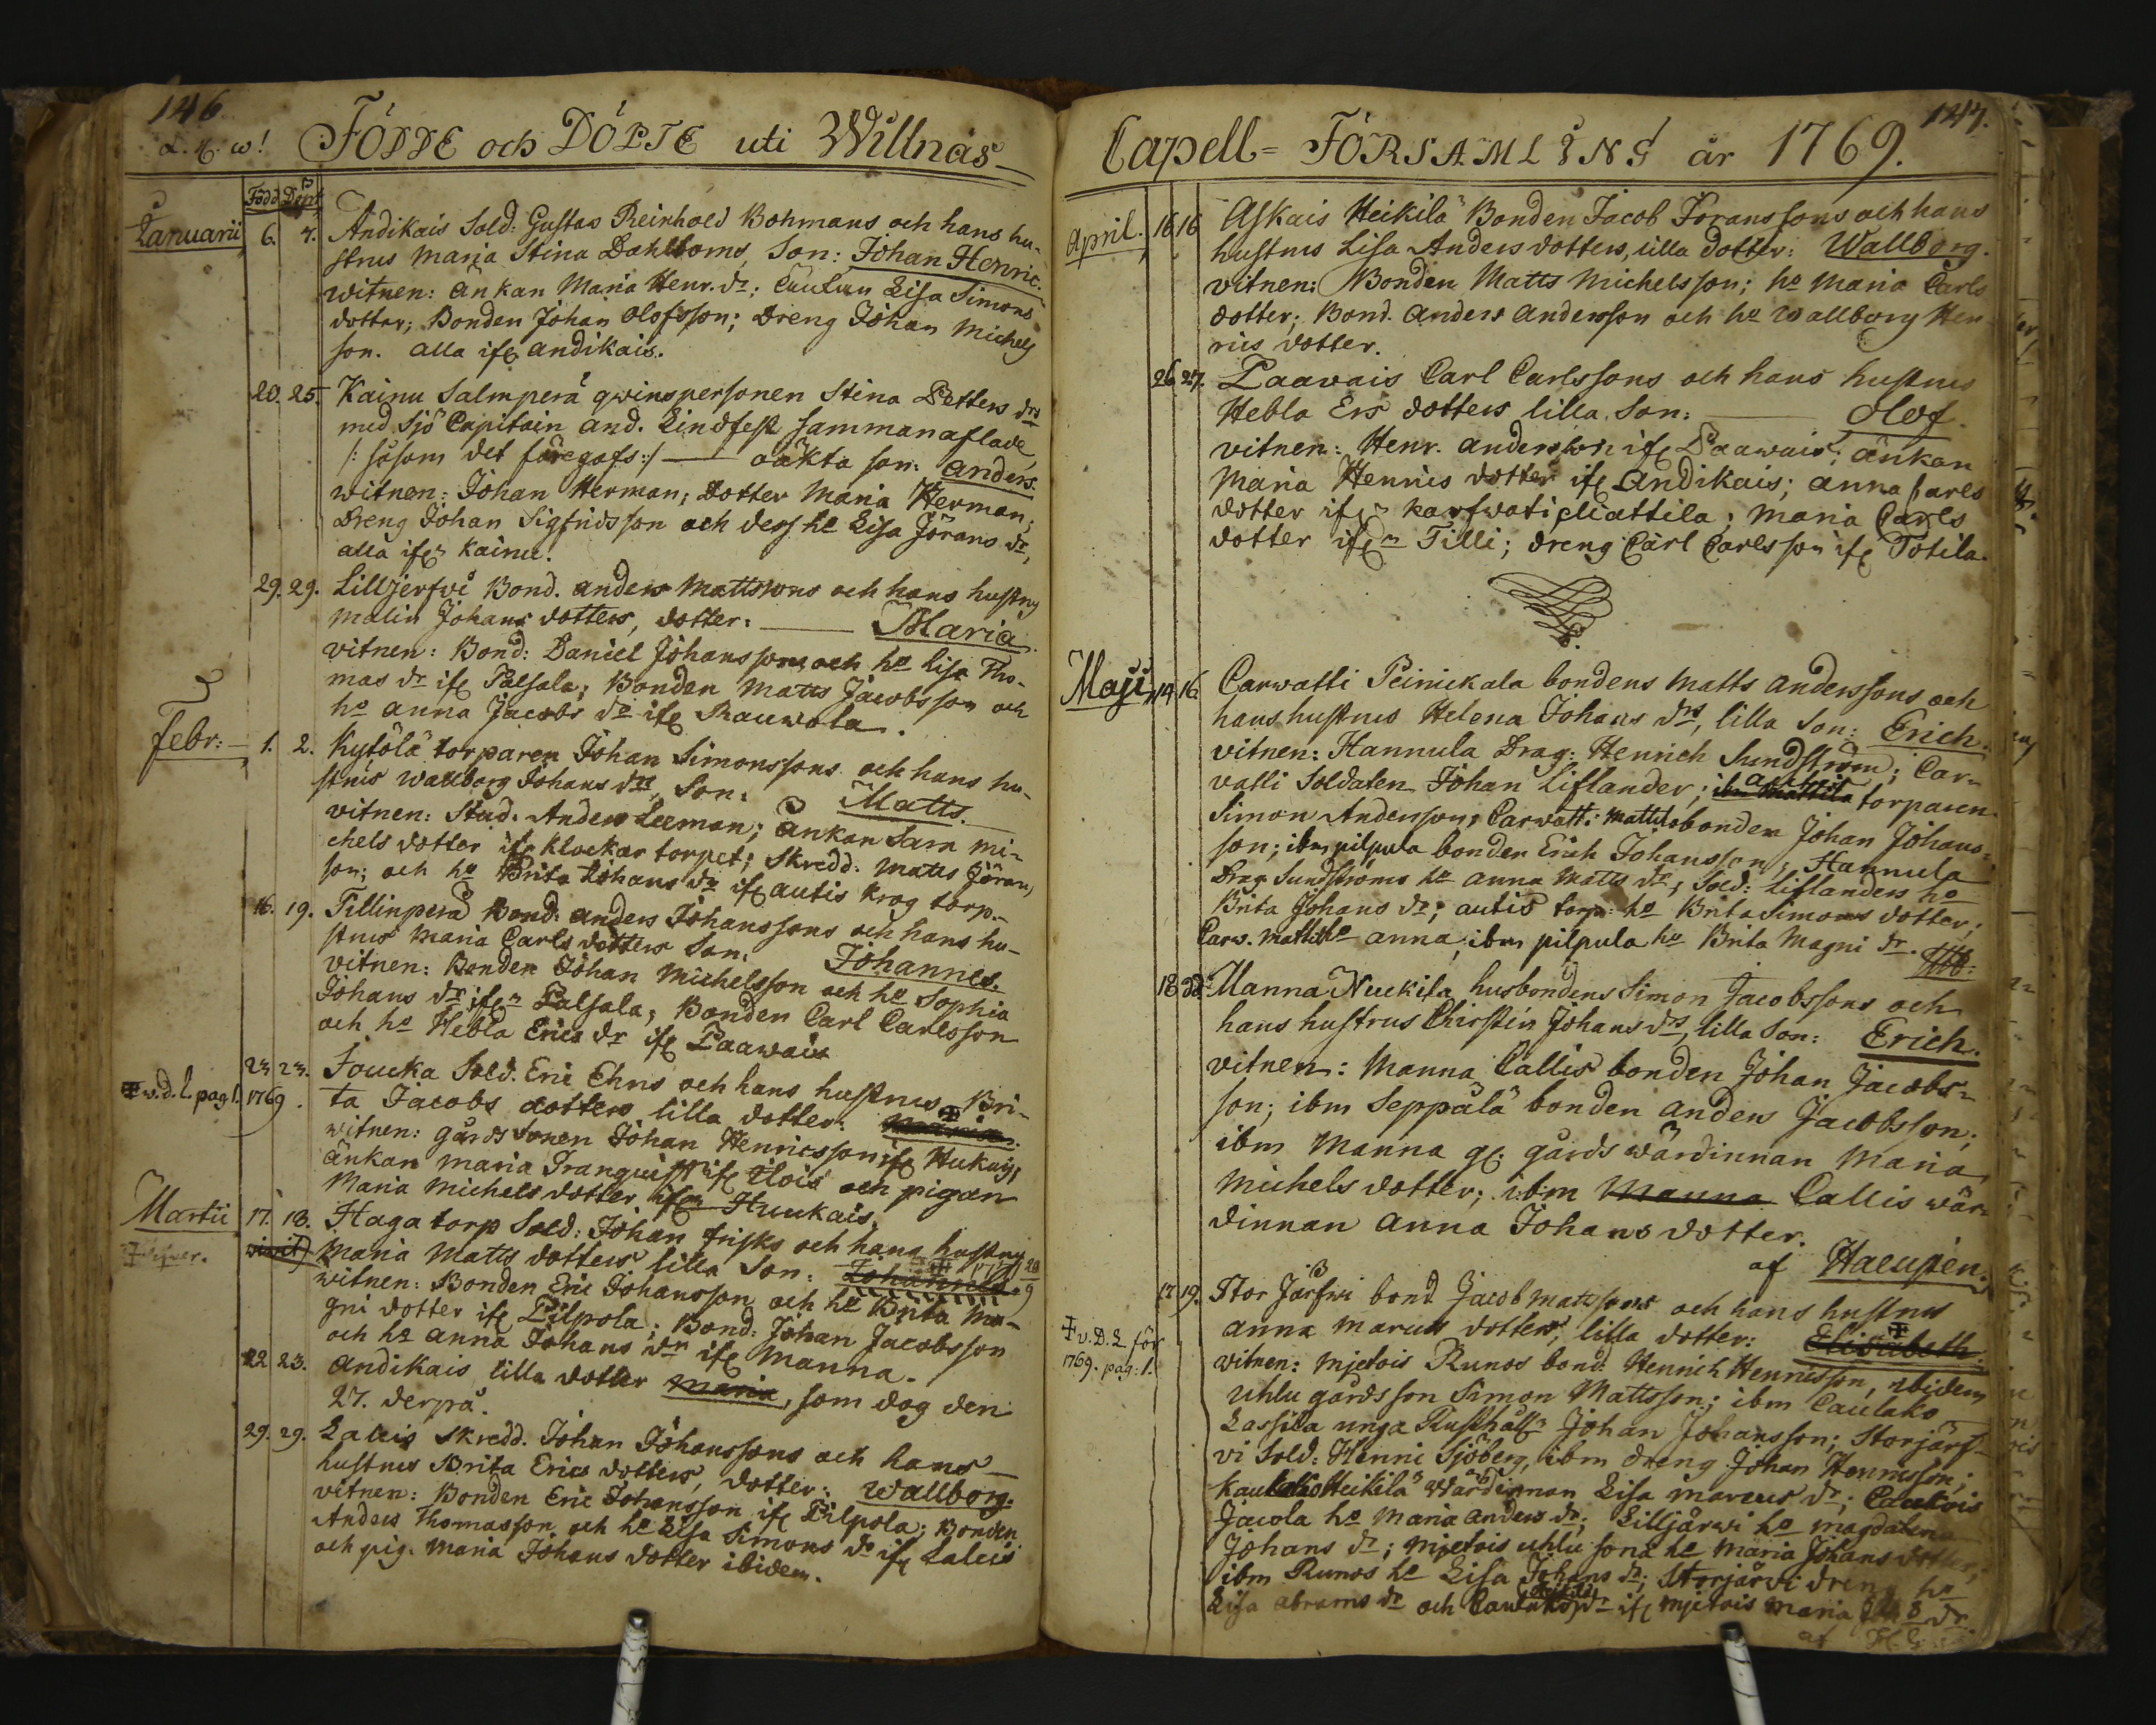 146.
FÖDDE och DÖPTE uti Willnäs
Född Döpt
Januarii 6. 7. Andikais Sold: Gustav Reinhold Bohmans och hans hu-
strus Maria Stina Dahlboms, Son: Johan Henric.
witnen: änkan Maria Henr. dr; Lisa Simons
dotter; Bonden Johan Olofsson; Dreng Johan Michels
son. alla ifr Andikais.
20. 25. Kainu Salmperä qwinspersonen Stina Petters drs
med Sjö Capitain And. Lindfelt sammanaflade
/: såsom det föregafs :/ — oäkta son: Anders.
witnen: Johan Herman; Dotter Maria Herman;
Dreng Johan Sigfridsson och dess ho Lisa Jörans dr,
alla ifrn Kainu.
29. 29. Lilljerfvi Bond. Anders Mattssons och hans hustrus
Malin Johans dotters, dotter: — Maria
vitnen: Bond: Daniel Johanssons och ho Lisa Tho-
mas dr ifr Palsala; Bonden Matts Jacobsson och
ho Anna Jacobs dr ifr Rauwola.
Febr: 1. 2. Kytölä torparen Johan Simonssons och hans hu-
strus Wallborg Johans drs, Son: Matts.
vitnen: Stud. Anders Leeman; änkan Sara Mi-
chels dotter ifr Klockar torpet; Skredd. Matts Jöran,
son; och ho Brita Johans dr ifr Autis krog torp.
16. 19. Tillinperä Bond: Anders Johanssons och hans hu-
strus Maria Carls dotters Son, Johannes.
vitnen: Bonden Johan Michelsson och ho Sophia
Johans dr ifrn Palsala; Bonden Carl Carlsson
och ho Hebla Erics dr ifr Paawais
23 23. Joucka Sold. Eric Ehns och hans hustrus Bri-
v. d. L. pag 1. 1769. ta Jacobs dotters lilla dotter: Maria.
witnen: gårds sonen Johan Henricsson ifr Hukais;
änkan Maria Tranquist ifr och pigan
Maria Michels dotter ifrn Huukais.
Martii 17. 18. Haga torp Sold: Johan Frisks och hans hustrus
Maria Matts dotters lilla Son: Johannes.
witnen: Bonden Eric Johansson och ho Brita Ma-
gni dotter ifr Pilpola; Bond: Johan Jacobsson
och ho Anna Johans dr ifr Manna.
22 23. Andikais lilla dotter Maria, som dog den
27. derpå.
29. 29. Laleis Skredd. Johan Johanssons och hans
hustrus Brita Erics dotters, dotter: Wallborg.
vitnen: Bonden Eric Johansson ifr Pilpola; Bonden
Anders Thomasson och ho Lisa Simons dr ifr Laleis
och pig. Maria Johans dotter ibidem.
147.
Capell=FÖRSAMLING år 1769.
April. 16 16 Askais Heikilä Bonden Jacob Joranssons och hans
hustrus Lisa Anders dotters, lilla dotter: Wallborg.
vitnen: Bonden Matts Michelsson; ho Maria Carls
dotter; Bond. Anders Andersson och ho Wallborg Hen-
rics dotter.
26. 27. Paawais Carl Carlssons och hans hustrus
Hebla Ers dotters lilla Son: — Olof.
vitnen: Henr. Andersson ifr Paawais; änkan
Maria Henrics dotter ifr Andikais; Anna Carls
dotter ifrn Karfwati; Maria Carls
dotter ifrn Tilli; dreng Carl Carlsson ifr Totila.
Maji 14 16 Carwatti Peinickala bondens Matts Anderssons och
hans hustrus Helena Johans drs, lilla Son: Erich.
vitnen: Hannula Drag: Henrich Sundström; Car-
vatti Soldaten Johan Liflander; ibm Mattila autis torparen
Simon Andersson; Carvatti Mattila bonden Johan Johans-
son; ibm pilpula bonden Erich Johansson; Hannula
Drag. Sundströms ho Anna Matts dr; Sold: Liflanders ho
Brita Johans dr; Autis torp: ho Brita Simons dotter;
Carw. Mattil ho Anna; ibm pilpula ho Brita Magni dr.
18 dd Manna Nuckila husbondens Simon Jacobssons och
hans hustrus Christin Johans drs, lilla Son: Erich.
vitnen: Manna Callis bonden Johan Jacobs-
son; ibm Seppälä bonden Anders Jacobsson;
ibm Manna gl. gårds wärdinnan Maria
Michels dotter; ibm Manna Callis wär-
dinnan Anna Johans dotter.
af Haeupen.
17 19. Stor Järfwi bond Jacob Mattssons och hans hustrus
v. D. L för 1769. pag: 1. Anna Marcus dotters, lilla dotter: Elisabeth.
witnen: Mjetois Runos bond: Henrich Henricsson, ibidem
Uhlu gårds son Simon Mattsson; ibm Caulako
Lassila unga Rusthåll Johan Johansson; Storjärf-
vi Sold: Henric Sjöberg, ibm dreng Johan Henricsson;
Heikilä Wärdinnan Lisa Marcus dr;
Jacola ho Maria Anders dr; Lilljärwi ho Magdalena
Johans dr; Mjetois Uhlu sona ho Maria Johans dotter;
ibm Runos ho Lisa Johans dr; Storjärvi dreng ho
Lisa Abrams dr och ifr Mjetois Maria dr.